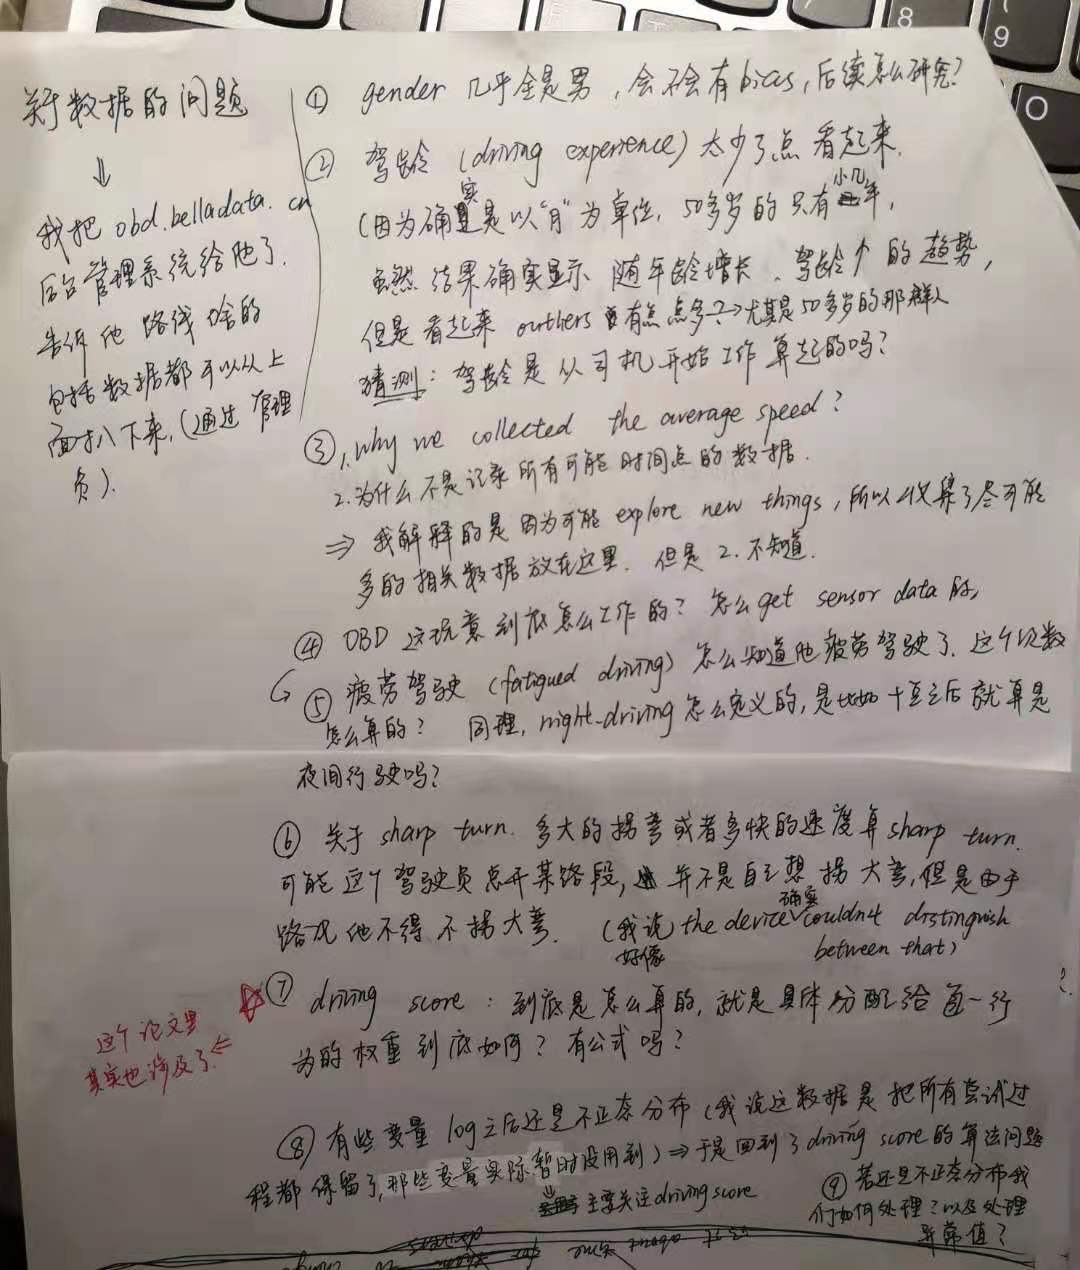 关于数据的问题
↓
我把 obd.belladata.cn
后台管理系统给他了.
告诉他 路线啥的
包括数据都可以从上
面扒下来,(通过管理
员).
① gender 几乎全是男,会不会有bias,后续怎么研究?
② 驾龄 (driving experience) 太少了点 看起来.
(因为确实是以"月"为单位, 50多岁的只有小几年,
虽然 结果确实显示 随年龄增长、驾龄↑ 的 趋势,
但是 看起来 outliers 有点点多?→尤其是50多岁的那群人
猜测: 驾龄是从司机开始工作算起的吗?
③ 1. why we collected the average speed?
2. 为什么不是记录所有可能时间点的数据.
⇒ 我解释的是因为可能 explore new things, 所以收集了尽可能
多的相关数据放在这里. 但是 2. 不知道.
④ OBD 这玩意到底怎么工作的? 怎么get sensor data的,
⑤ 疲劳驾驶 (fatigued driving) 怎么知道他疲劳驾驶了. 这个次数
怎么算的? 同理, night-driving 怎么定义的, 是比如十点之后就算是
夜间行驶吗?
⑥ 关于 sharp turn. 多大的拐弯或者多快的速度算sharp turn.
可能这个驾驶员总开某路段, 并不是自己想拐大弯,但是由于
路况他不得不拐大弯. (我说好像 the device 确实 couldn't distinguish
between that)
⑦ driving score: 到底是怎么算的, 就是具体分配给每一行
为的权重到底如何? 有公式吗?
这个论文里
其实也涉及了. ⇐
⑧ 有些变量 log之后还是不正态分布 (我说这数据是把所有尝试过
程都保留了,那些变量实际暂时没用到) ⇒ 于是回到了driving score的算法问题
↓
主要关注driving score
⑨ 若还是不正态分布我
们如何处理?以及处理
异常值?